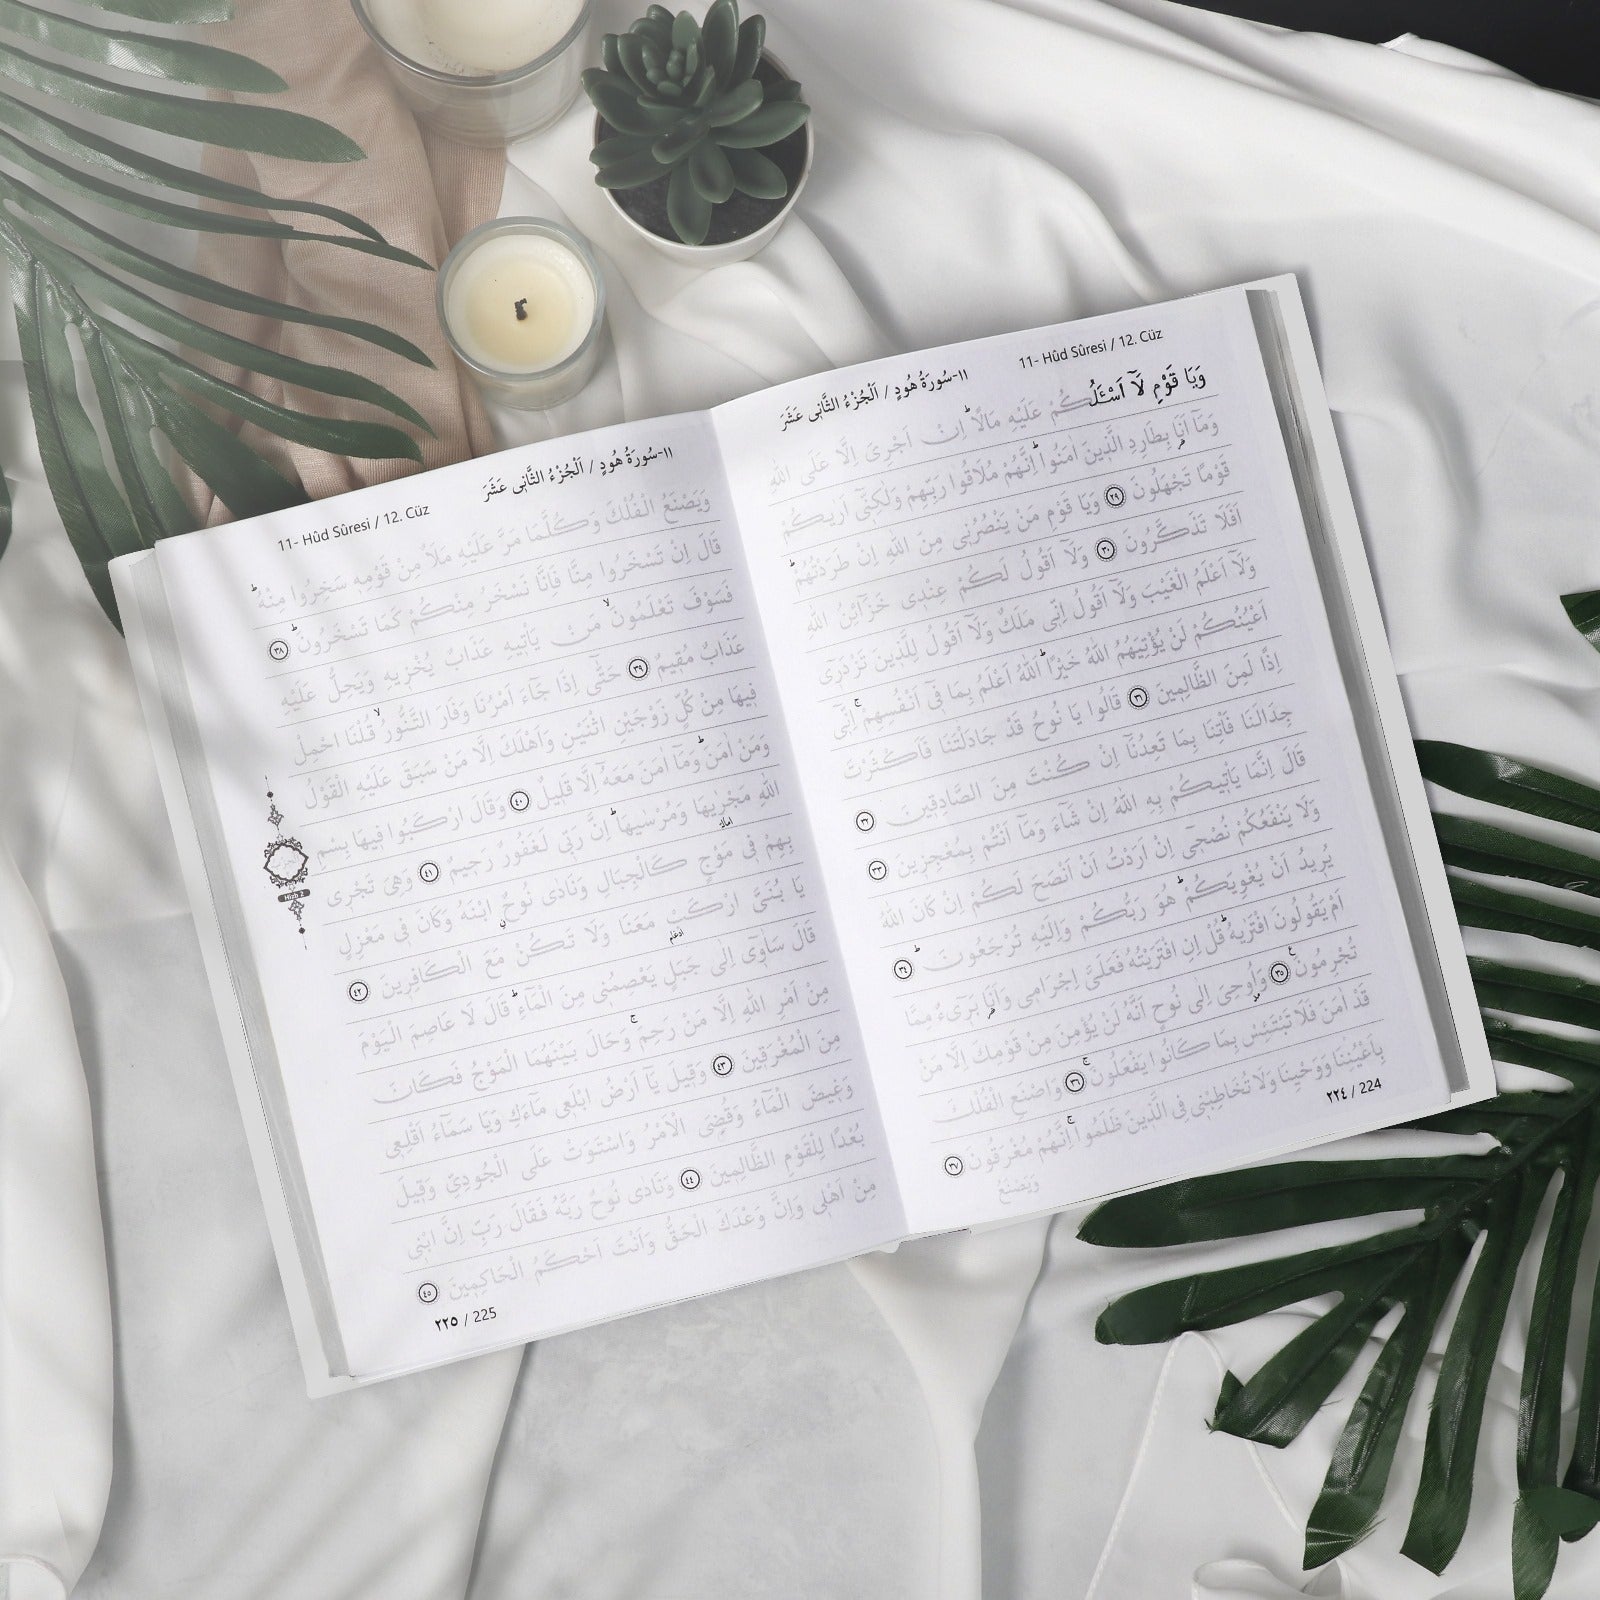 11- Hûd Sûresi / 12. Cüz
١١-سُورَةُ هُودٍ / اَلْجُزْءُ الثَّانِى عَشَرَ
وَيَا قَوْمِ لَٓا اَسْـَٔلُكُمْ عَلَيْهِ مَالًاۜ اِنْ اَجْرِىَ اِلَّا عَلَى اللّٰهِ
وَمَٓا اَنَا۬ بِطَارِدِ الَّذٖينَ اٰمَنُواۜ اِنَّهُمْ مُلَاقُوا رَبِّهِمْ وَلٰكِنّٖٓى اَرٰيكُمْ
قَوْمًا تَجْهَلُونَ ﴿٢٩﴾ وَيَا قَوْمِ مَنْ يَنْصُرُنٖى مِنَ اللّٰهِ اِنْ طَرَدْتُهُمْۜ
اَفَلَا تَذَكَّرُونَ ﴿٣٠﴾ وَلَٓا اَقُولُ لَكُمْ عِنْدٖى خَزَٓائِنُ اللّٰهِ
وَلَٓا اَعْلَمُ الْغَيْبَ وَلَٓا اَقُولُ اِنّٖى مَلَكٌ وَلَٓا اَقُولُ لِلَّذٖينَ تَزْدَرٖٓى
اَعْيُنُكُمْ لَنْ يُؤْتِيَهُمُ اللّٰهُ خَيْرًاۜ اَللّٰهُ اَعْلَمُ بِمَا فٖٓى اَنْفُسِهِمْۚ اِنّٖٓى
اِذًا لَمِنَ الظَّالِمٖينَ ﴿٣١﴾ قَالُوا يَا نُوحُ قَدْ جَادَلْتَنَا فَاَكْثَرْتَ
جِدَالَنَا فَأْتِنَا بِمَا تَعِدُنَٓا اِنْ كُنْتَ مِنَ الصَّادِقٖينَ ﴿٣٢﴾
قَالَ اِنَّمَا يَأْتٖيكُمْ بِهِ اللّٰهُ اِنْ شَٓاءَ وَمَٓا اَنْتُمْ بِمُعْجِزٖينَ ﴿٣٣﴾
وَلَا يَنْفَعُكُمْ نُصْحٖٓى اِنْ اَرَدْتُ اَنْ اَنْصَحَ لَكُمْ اِنْ كَانَ اللّٰهُ
يُرٖيدُ اَنْ يُغْوِيَكُمْۜ هُوَ رَبُّكُمْ وَاِلَيْهِ تُرْجَعُونَۜ ﴿٣٤﴾
اَمْ يَقُولُونَ افْتَرٰيهُۜ قُلْ اِنِ افْتَرَيْتُهُ فَعَلَىَّ اِجْرَامٖى وَاَنَا۬ بَرٖٓىءٌ مِمَّا
تُجْرِمُونَ۟ ﴿٣٥﴾ وَاُو۫حِىَ اِلٰى نُوحٍ اَنَّهُ لَنْ يُؤْمِنَ مِنْ قَوْمِكَ اِلَّا مَنْ
قَدْ اٰمَنَ فَلَا تَبْتَئِسْ بِمَا كَانُوا يَفْعَلُونَۚ ﴿٣٦﴾ وَاصْنَعِ الْفُلْكَ
بِاَعْيُنِنَا وَوَحْيِنَا وَلَا تُخَاطِبْنٖى فِى الَّذٖينَ ظَلَمُواۚ اِنَّهُمْ مُغْرَقُونَ ﴿٣٧﴾
وَيَصْنَعُ
٢٢٤ / 224
11- Hûd Sûresi / 12. Cüz
١١-سُورَةُ هُودٍ / اَلْجُزْءُ الثَّانِى عَشَرَ
وَيَصْنَعُ الْفُلْكَ وَكُلَّمَا مَرَّ عَلَيْهِ مَلَاٌ مِنْ قَوْمِهٖ سَخِرُوا مِنْهُۜ
قَالَ اِنْ تَسْخَرُوا مِنَّا فَاِنَّا نَسْخَرُ مِنْكُمْ كَمَا تَسْخَرُونَۜ ﴿٣٨﴾
فَسَوْفَ تَعْلَمُونَۙ مَنْ يَأْتٖيهِ عَذَابٌ يُخْزٖيهِ وَيَحِلُّ عَلَيْهِ
عَذَابٌ مُقٖيمٌ ﴿٣٩﴾ حَتّٰٓى اِذَا جَٓاءَ اَمْرُنَا وَفَارَ التَّنُّورُۙ قُلْنَا احْمِلْ
فٖيهَا مِنْ كُلٍّ زَوْجَيْنِ اثْنَيْنِ وَاَهْلَكَ اِلَّا مَنْ سَبَقَ عَلَيْهِ الْقَوْلُ
وَمَنْ اٰمَنَۜ وَمَٓا اٰمَنَ مَعَهُٓ اِلَّا قَلٖيلٌ ﴿٤٠﴾ وَقَالَ ارْكَبُوا فٖيهَا بِسْمِ
اللّٰهِ مَجْرٰۭيهَا وَمُرْسٰيهَاۜ اِنَّ رَبّٖى لَغَفُورٌ رَحٖيمٌ ﴿٤١﴾ وَهِىَ تَجْرٖى
بِهِمْ فٖى مَوْجٍ كَالْجِبَالِ وَنَادٰى نُوحٌۨ ابْنَهُ وَكَانَ فٖى مَعْزِلٍ
يَا بُنَىَّ ارْكَبْ مَعَنَا وَلَا تَكُنْ مَعَ الْكَافِرٖينَ ﴿٤٢﴾
قَالَ سَاٰوٖٓى اِلٰى جَبَلٍ يَعْصِمُنٖى مِنَ الْمَٓاءِۜ قَالَ لَا عَاصِمَ الْيَوْمَ
مِنْ اَمْرِ اللّٰهِ اِلَّا مَنْ رَحِمَۚ وَحَالَ بَيْنَهُمَا الْمَوْجُ فَكَانَ
مِنَ الْمُغْرَقٖينَ ﴿٤٣﴾ وَقٖيلَ يَٓا اَرْضُ ابْلَعٖى مَٓاءَكِ وَيَا سَمَٓاءُ اَقْلِعٖى
وَغٖيضَ الْمَٓاءُ وَقُضِىَ الْاَمْرُ وَاسْتَوَتْ عَلَى الْجُودِىِّ وَقٖيلَ
بُعْدًا لِلْقَوْمِ الظَّالِمٖينَ ﴿٤٤﴾ وَنَادٰى نُوحٌ رَبَّهُ فَقَالَ رَبِّ اِنَّ ابْنٖى
مِنْ اَهْلٖى وَاِنَّ وَعْدَكَ الْحَقُّ وَاَنْتَ اَحْكَمُ الْحَاكِمٖينَ ﴿٤٥﴾
Hizb 2
٢٢٥ / 225